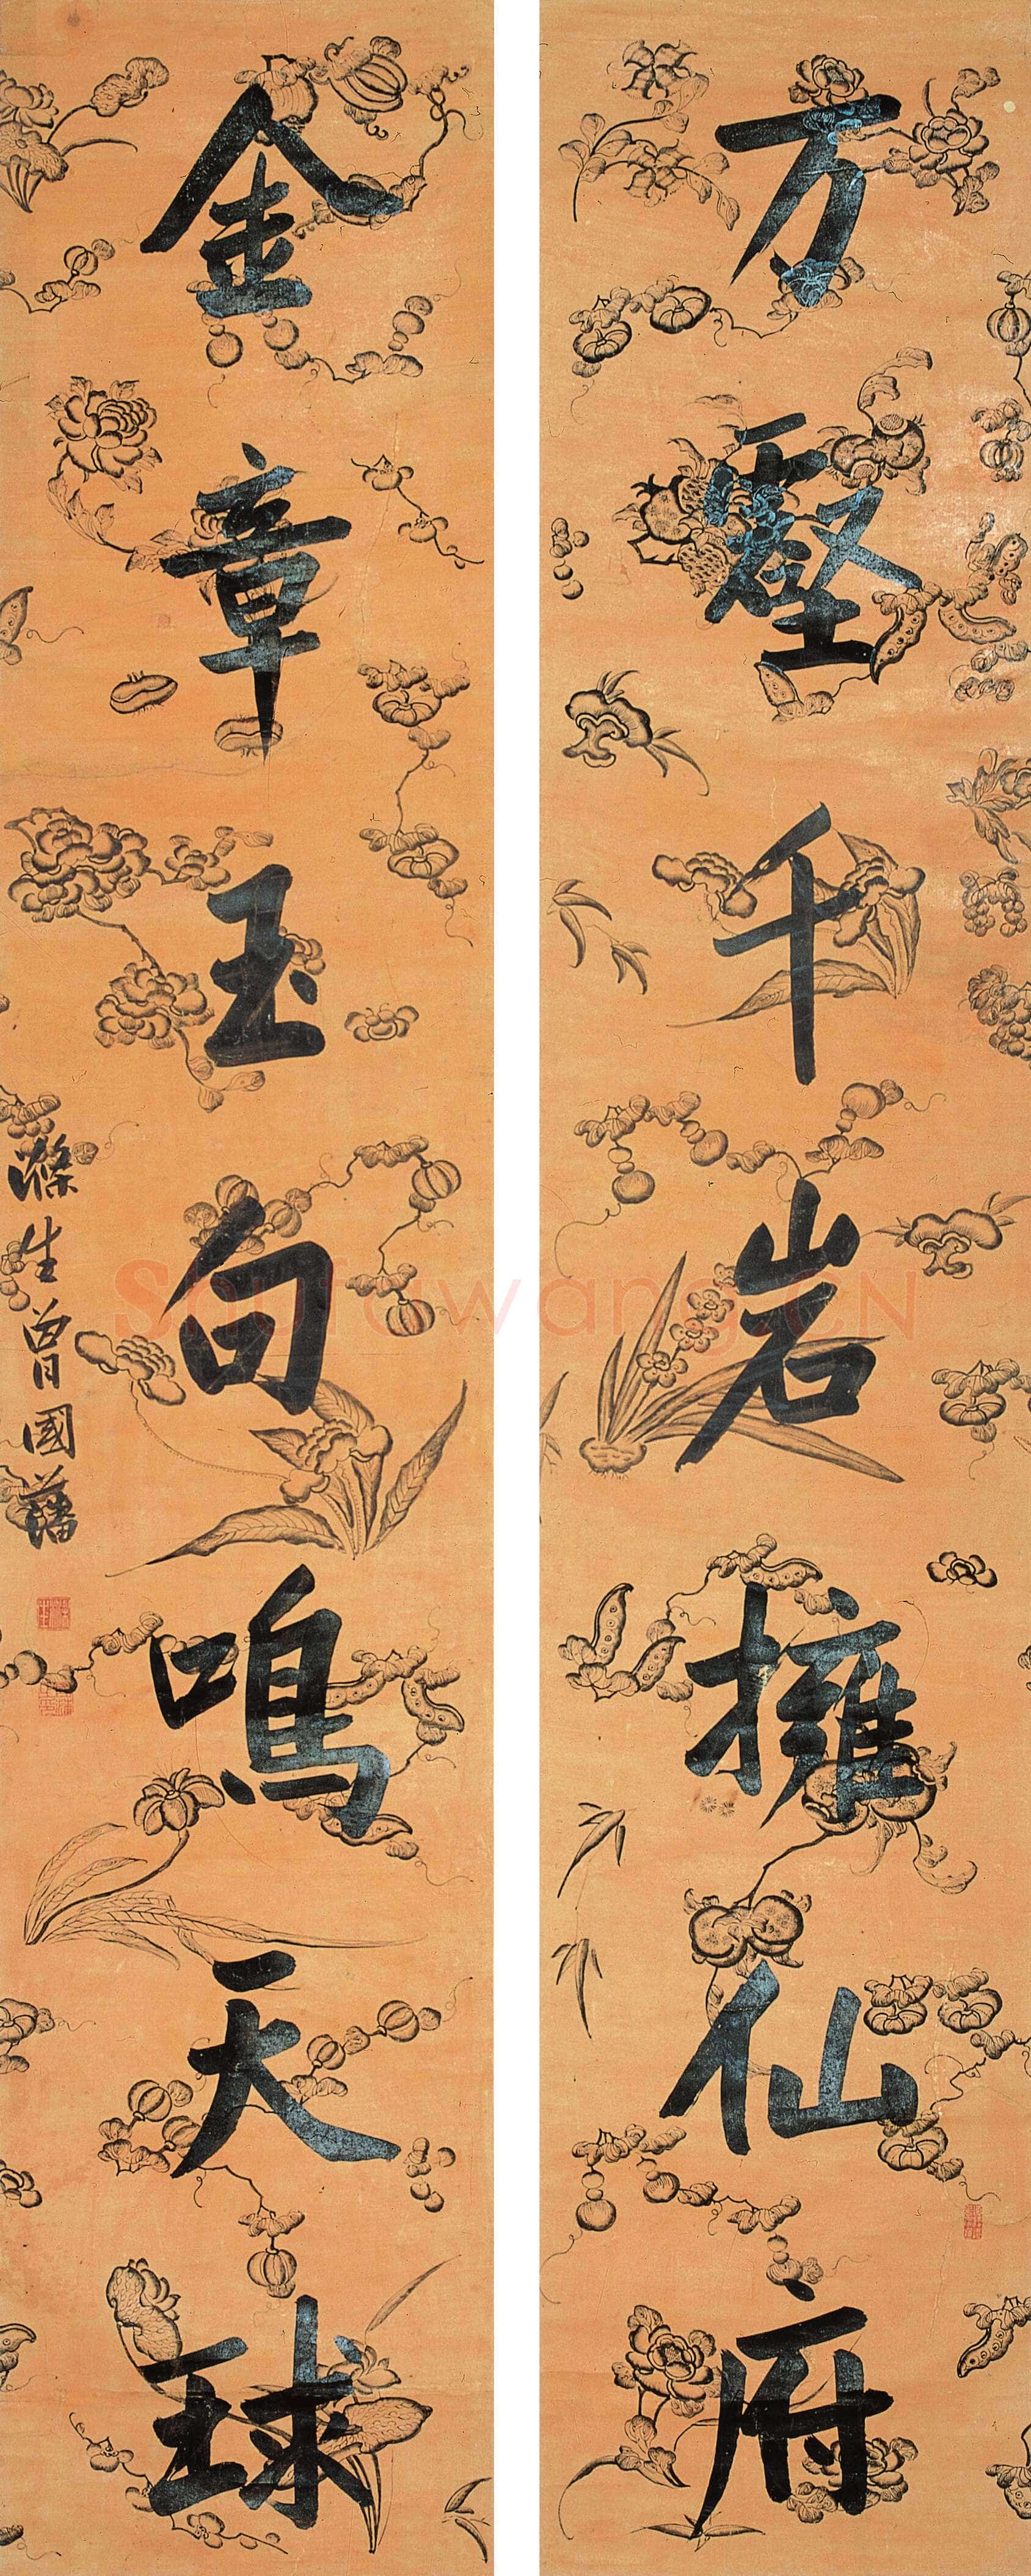 万壑千岩擁仙府
金章玉句鳴天球
滌生曾國藩
Shufawang.CN